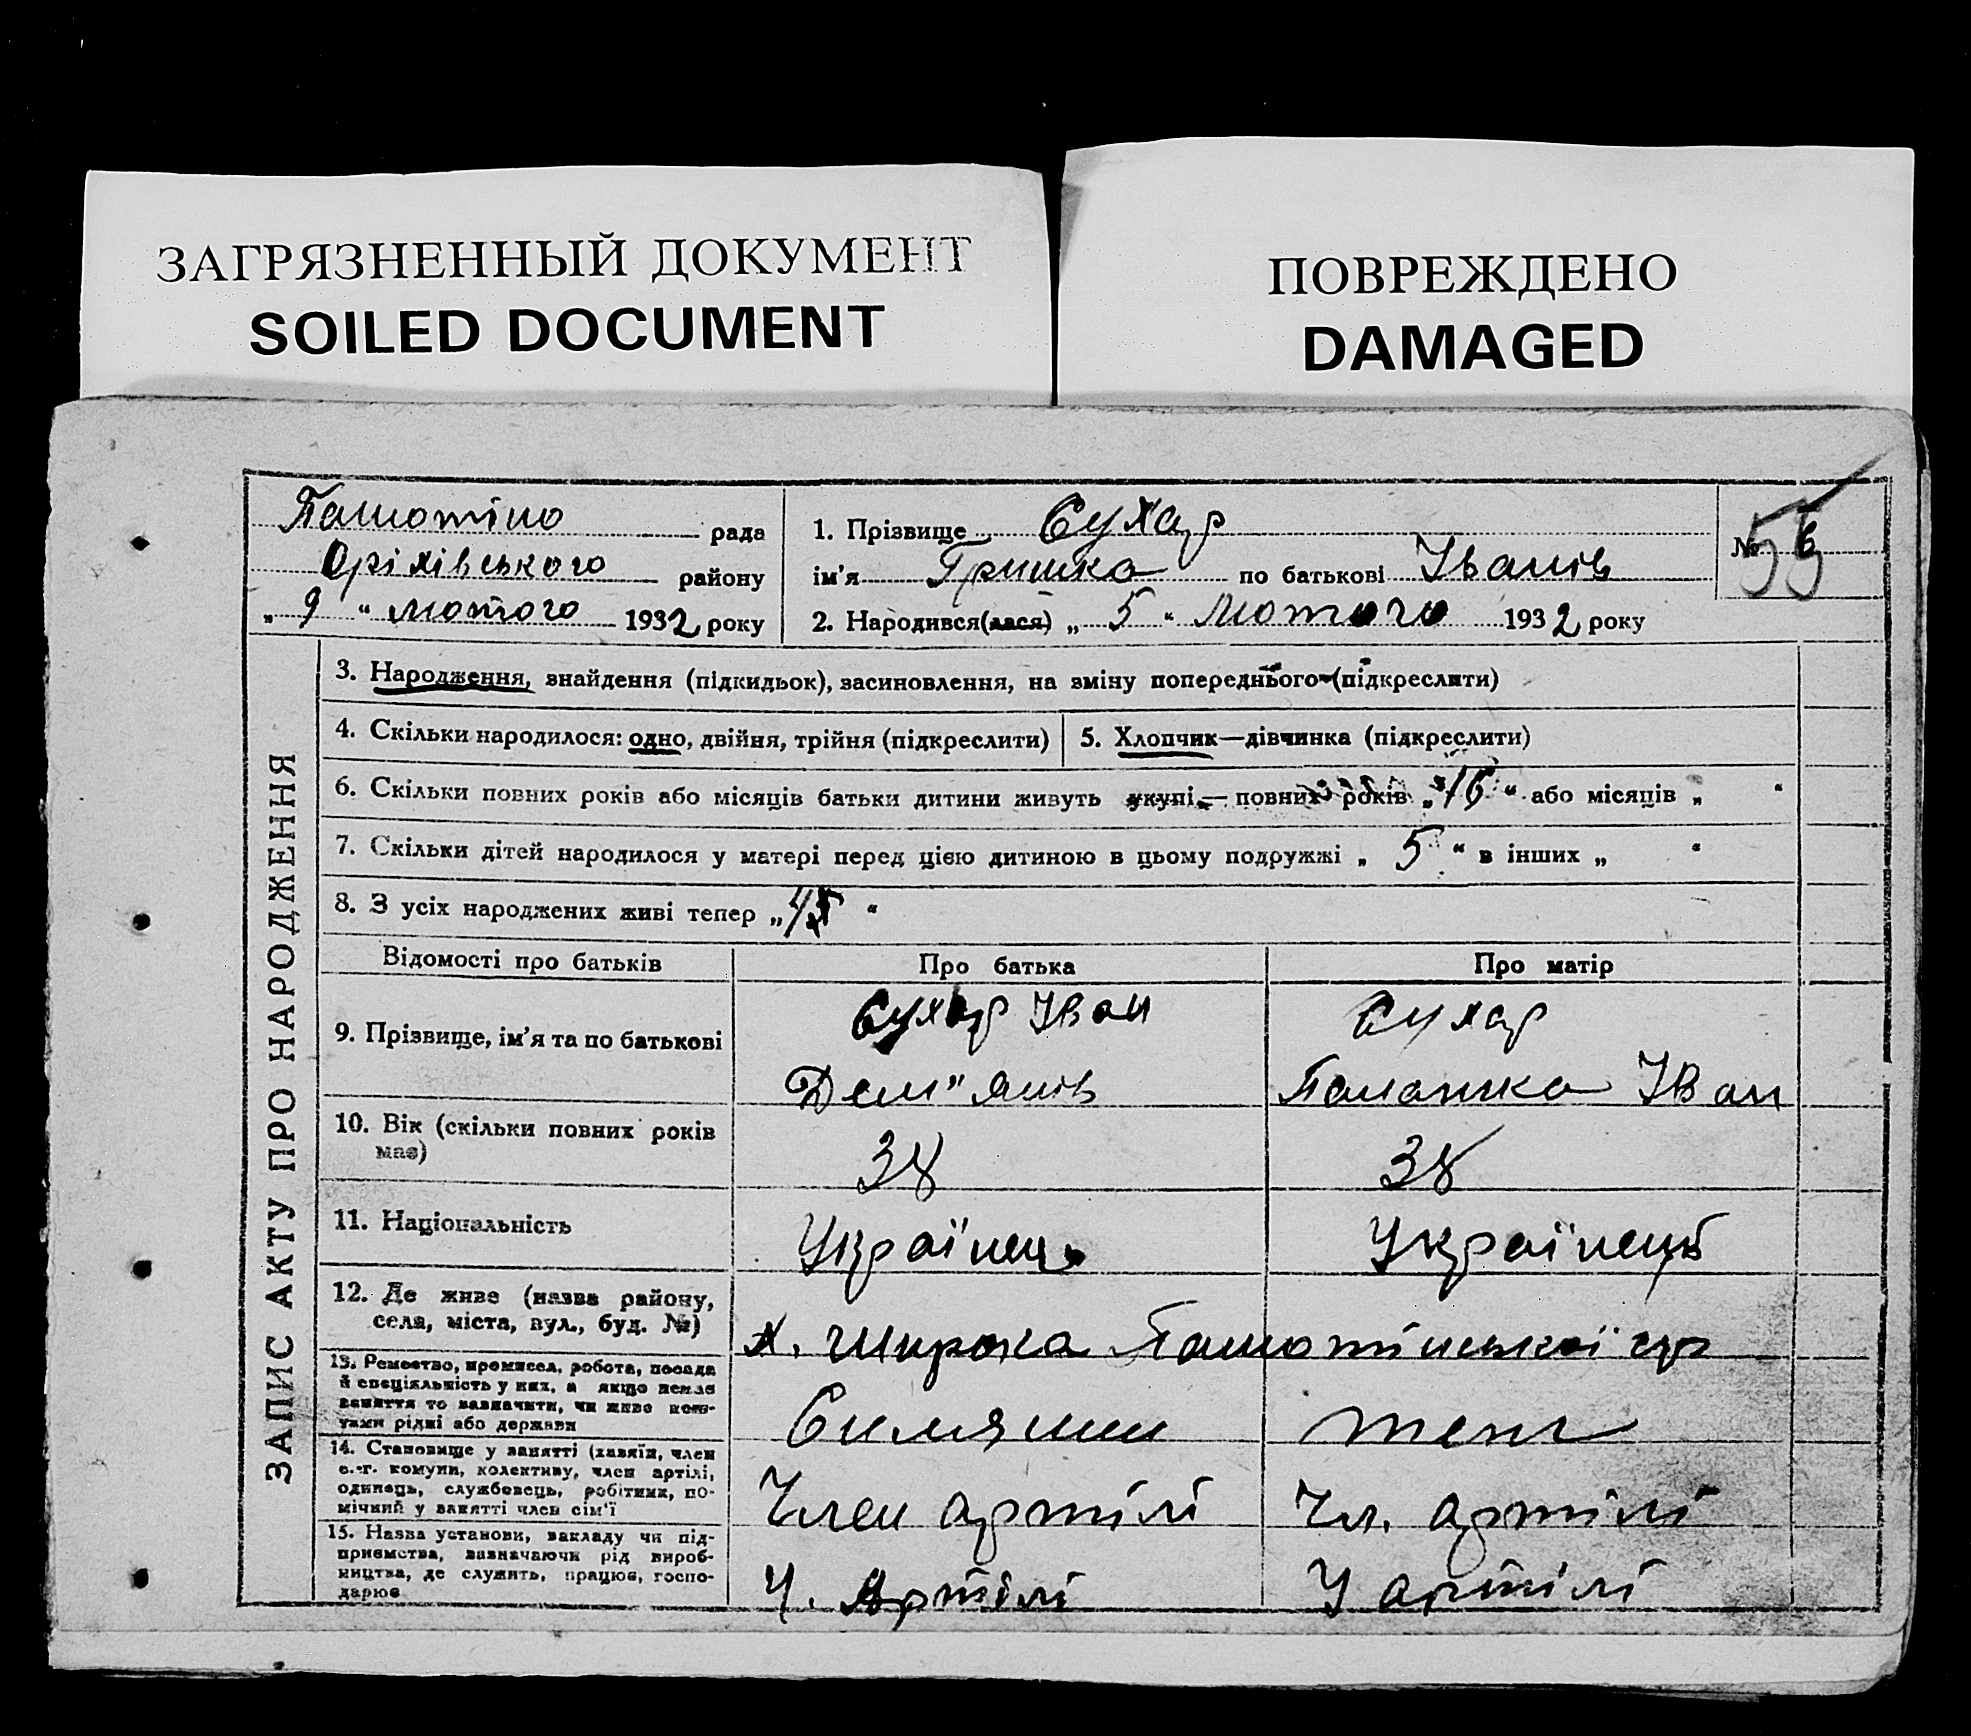 ЗАГРЯЗНЕННЫЙ ДОКУМЕНТ
SOILED DOCUMENT
ПОВРЕЖДЕНО
DAMAGED
рада
Оріхівського району
„ 9 “ лютого 1932 року
1. Прізвище Сухар
ім’я Гришка по батькові Іванів
2. Народився(лася) „ 5 “ Лютого 1932 року
№
ЗАПИС АКТУ ПРО НАРОДЖЕННЯ
3. Народження, знайдення (підкидьок), засиновлення, на зміну попереднього (підкреслити)
4. Скільки народилося: одно, двійня, трійня (підкреслити)
5. Хлопчик—дівчинка (підкреслити)
6. Скільки повних років або місяців батьки дитини живуть укупі — повних років „16“ або місяців „ “
7. Скільки дітей народилося у матері перед цією дитиною в цьому подружжі „ 5 “ в інших „ “
8. З усіх народжених живі тепер „ “
Відомості про батьків
Про батька
Про матір
9. Прізвище, ім’я та по батькові
Сухар Іван
Дем"янів
Сухар
Палажка Іван
10. Вік (скільки повних років
має)
38
38
11. Національність
Українець
Українець
12. Де живе (назва району,
села, міста, вул., буд. №)
х. Широка
13. Ремество, промисел, робота, посада
й спеціяльність у них, а якщо немає
заняття то зазначити, чи живе кош-
тами рідні або держави
14. Становище у занятті (хазяїн, член
с.-г. комуни, колективу, член артілі,
одинець, службовець, робітник, по-
мічний у занятті член сім’ї
Член артілі
Чл. артілі
15. Назва установи, закладу чи під-
приємства, зазначаючи рід вироб-
ництва, де служить, працює, госпо-
дарює
У. Артілі
У артілі